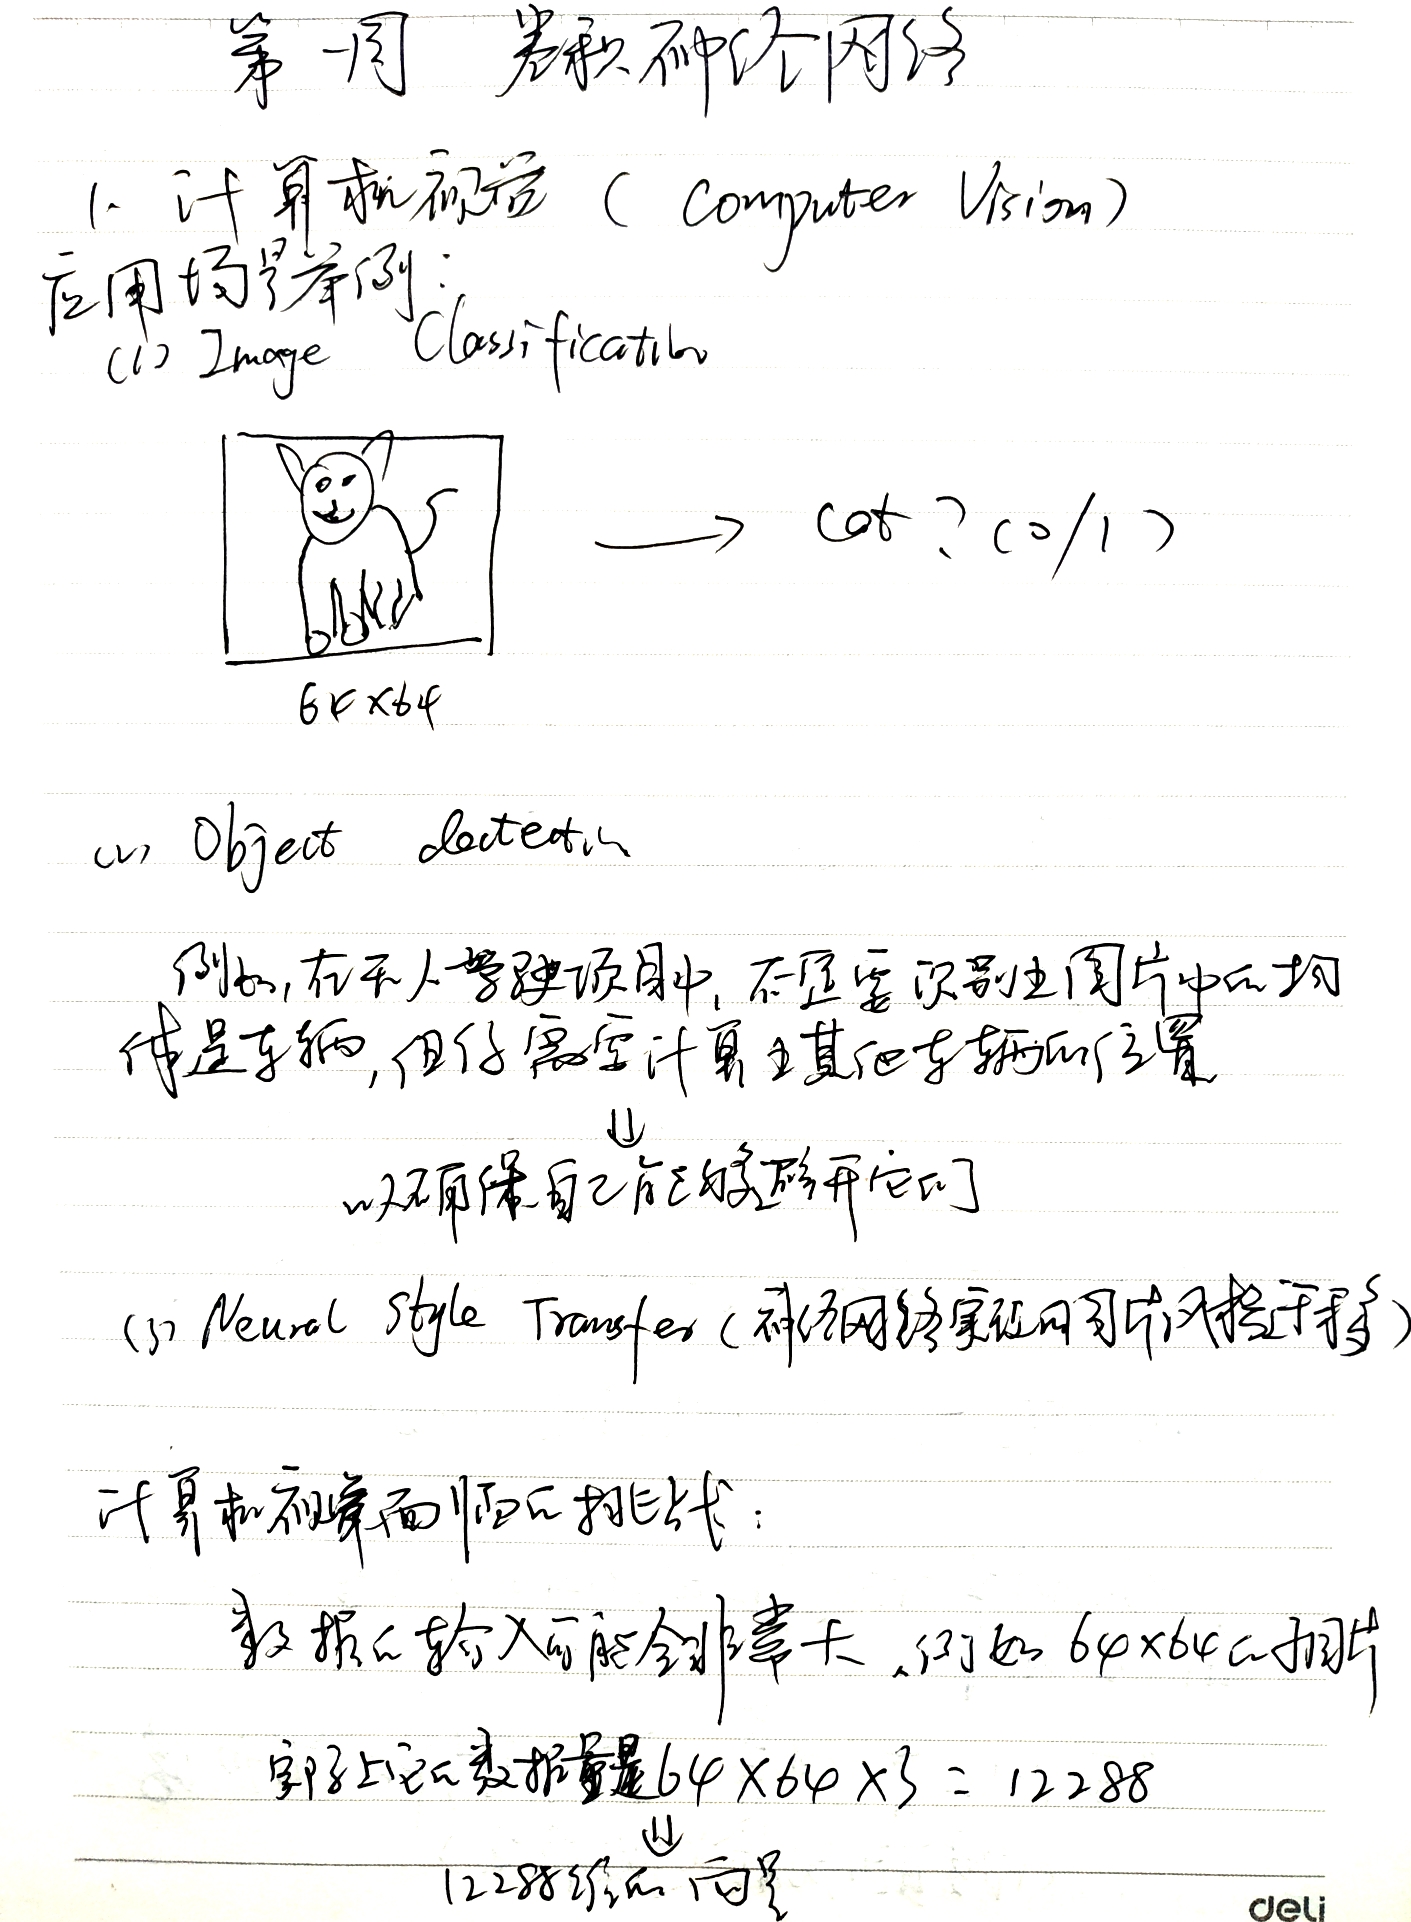 第一周 卷积神经网络
1. 计算机视觉 ( Computer Vision )
应用场景举例:
(1) Image Classification
→ cat ? (0/1)
64×64
(2) Object dectection
例如,在无人驾驶项目中,不一定要识别出图片中的物
体是车辆,但仍需要计算出其他车辆的位置
⇓
以确保自己能够避开它们
(3) Neural Style Transfer (神经网络实现的图片风格迁移)
计算机视觉面临的挑战:
数据的输入可能会非常大,例如 64×64的小图片
实际上它的数据量是64×64×3 = 12288
⇓
12288维的向量
deli